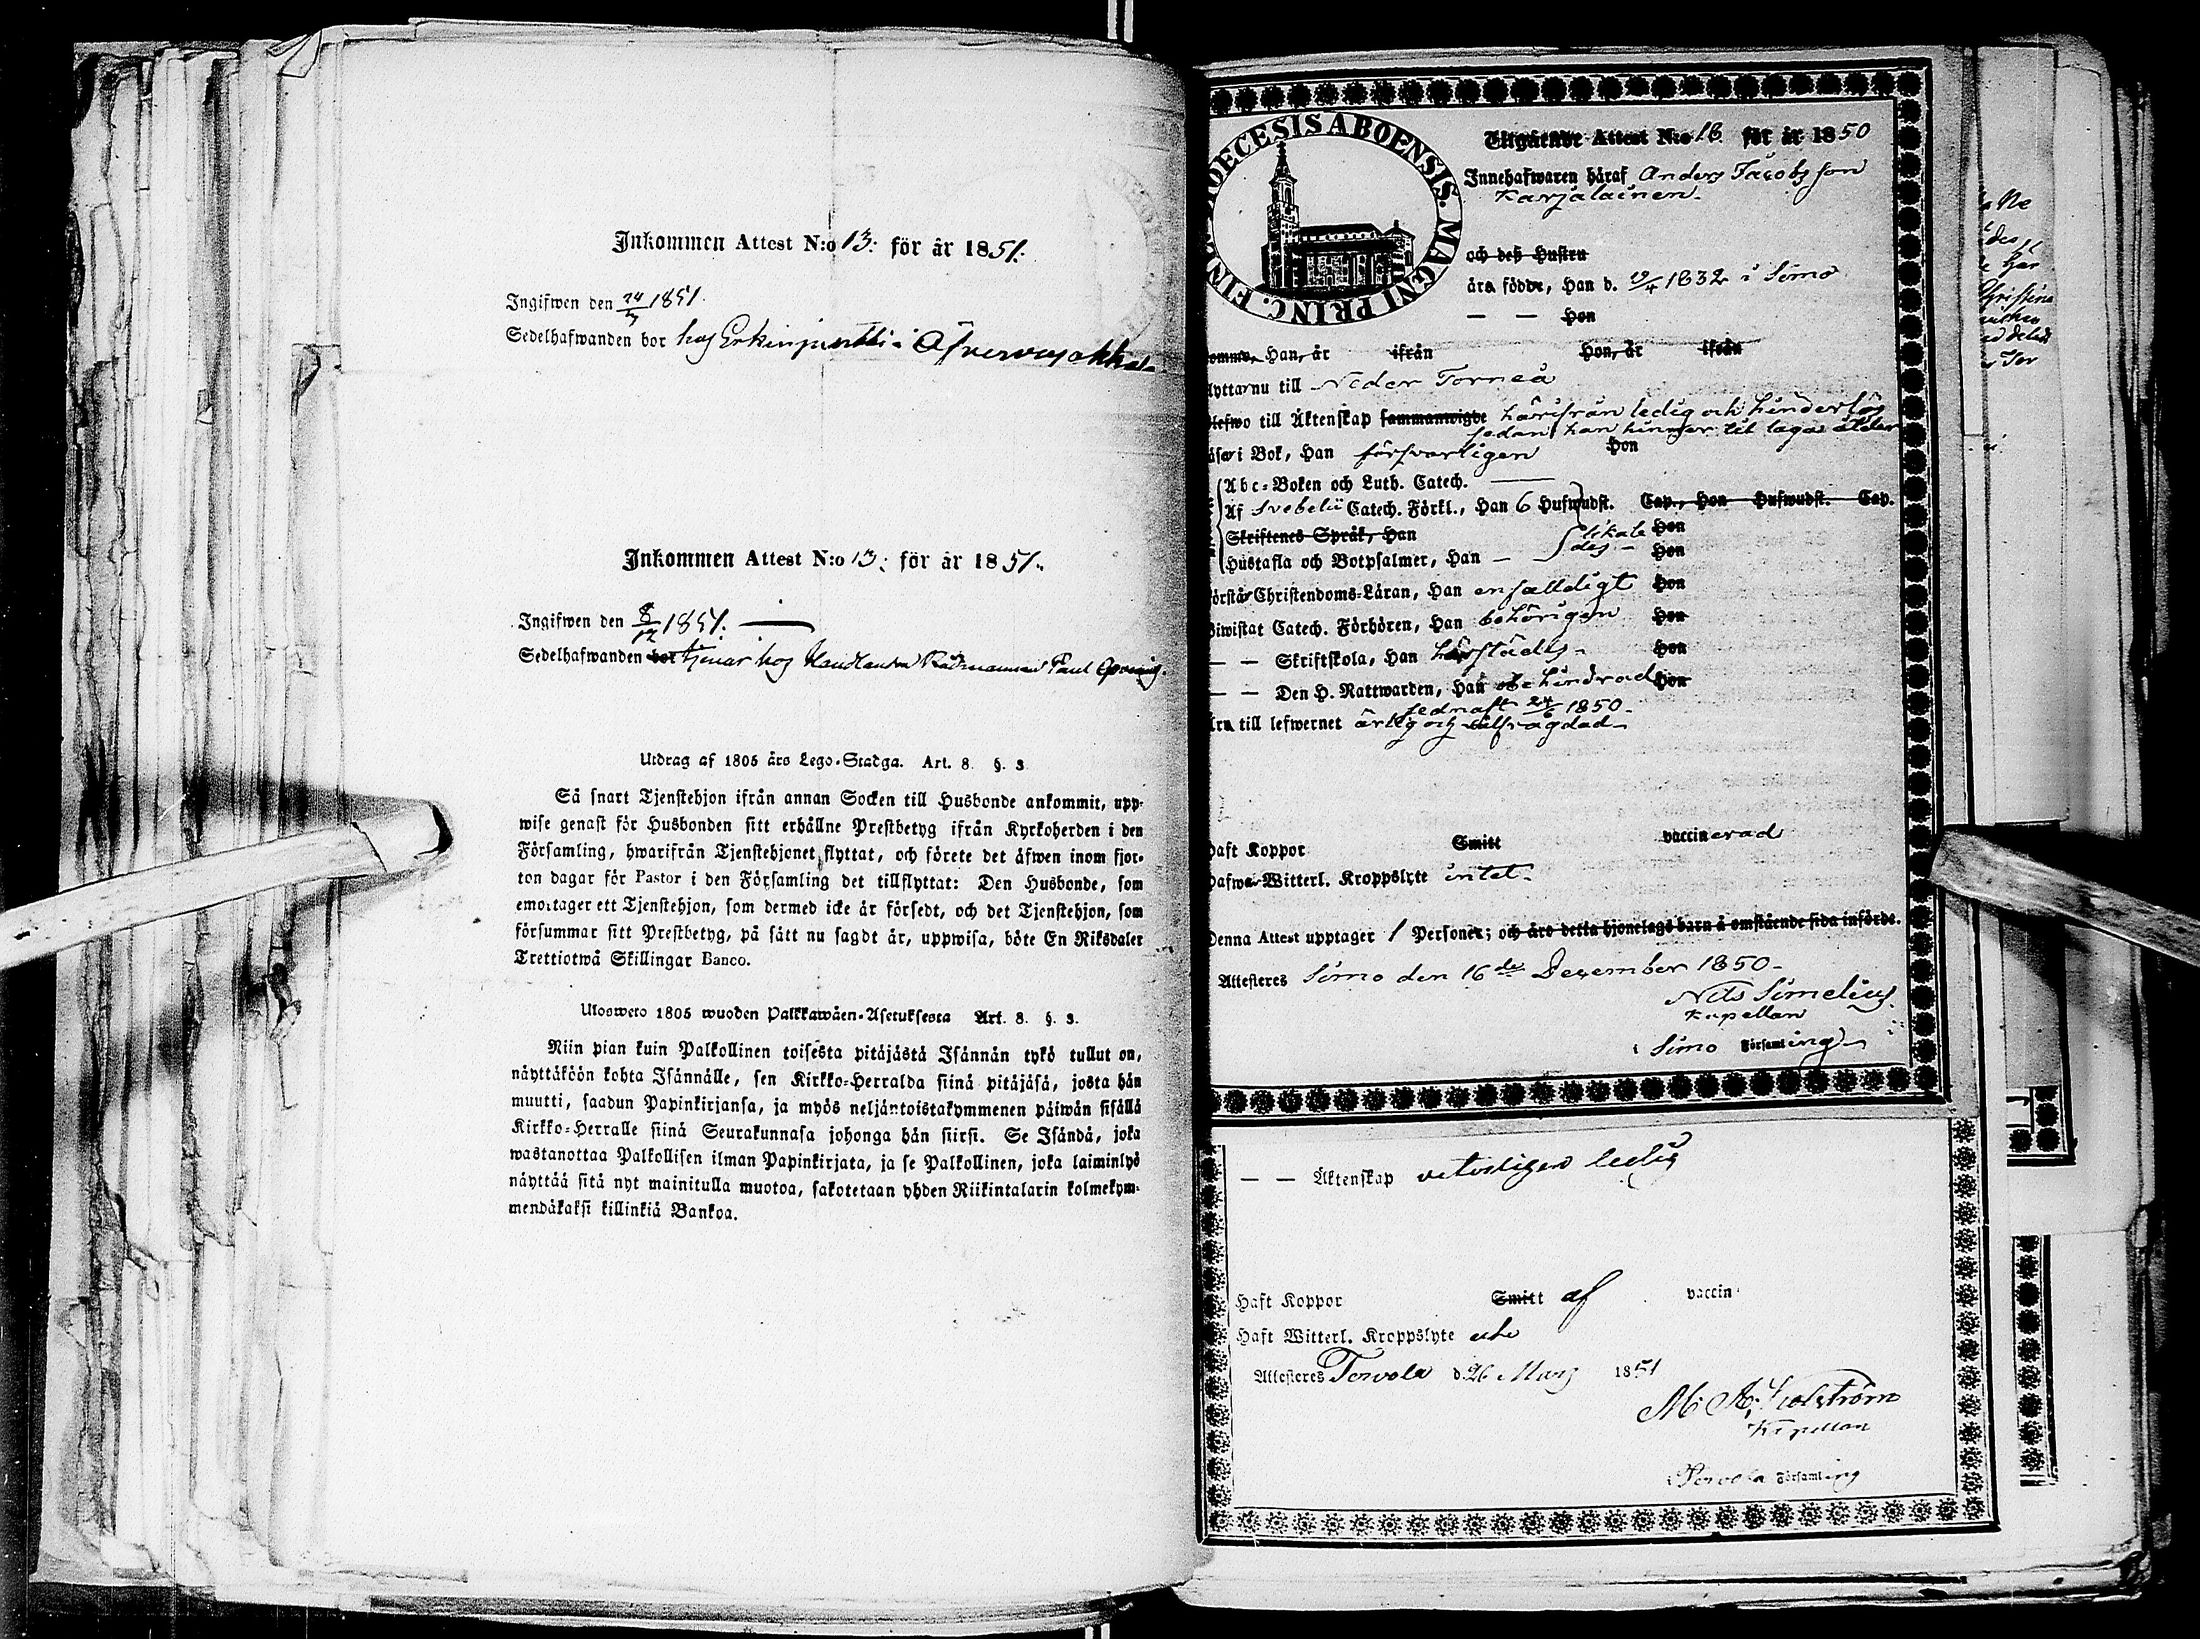 Inkommen Attest N:o 13. för år 1851.
Ingifwen den 24/3 1851.
Sedelhafwanden bor hos Erkinjuntti i
Inkommen Attest N:o 13. för år 1851.
Ingifwen den 8/12 1851.
Sedelhafwanden bor tjenar hos Handlanden Rådmannen Paul
Utdrag af 1805 års Lego-Stadga. Art. 8. §. 3.
Så snart Tjenstehjon ifrån annan Socken till Husbonde ankommit, upp-
wise genast för Husbonden sitt erhållne Prestbetyg ifrån Kyrkoherden i den
Församling, hwarifrån Tjenstehjonet flyttat, och förete det äfwen inom fjor-
ton dagar för Pastor i den Församling det tillflyttat: Den Husbonde, som
emottager ett Tjenstehjon, som dermed icke är försedt, och det Tjenstehjon, som
försummar sitt Prestbetyg, på sätt nu sagdt är, uppwisa, böte En Riksdaler
Trettiotwå Skillingar Banco.
Ulosweto 1805 wuoden Palkkawäen-Asetuksesta Art. 8. §. 3.
Niin pian kuin Palkollinen toisesta pitäjästä Isännän tykö tullut on,
näyttäköön kohta Isännälle, sen Kirkko-Herralda siinä pitäjäsä, josta hän
muutti, saadun Papinkirjansa, ja myös neljäntoistakymmenen päiwän sisällä
Kirkko-Herralle siinä Seurakunnasa johonga hän siirsi. Se Isändä, joka
wastanottaa Palkollisen ilman Papinkirjata, ja se Palkollinen, joka laiminlyö
näyttää sitä nyt mainitulla muotoa, sakotetaan yhden Riikintalarin kolmekym-
mendäkaksi killinkiä Bankoa.
DIOECESIS ABOENSIS. MAGNI PRINC. FINL.
Utgående Attest N:o 16. för år 1850
Innehafwaren häraf Anders Jacobsson
Karjalainen.
och deß Hustru
ära födde, Han d. 9/4 1832 i Simo
— — Hon
Han, är ifrån Hon, är ifrån
nu till Neder Torneå
till Äktenskap sammanwigde härifrån ledig och hinderlös
sedan han hinner till laga ålder
i Bok, Han försvarligen Hon
Abc-Boken och Luth. Catech. —
Af Svebelii Catech. Förkl., Han 6 Hufwudst. Cap., Hon Hufwudst. Cap.
Skriftenes Språk, Han likale Hon
Hustafla och Botpsalmer, Han — des — Hon
Christendoms-Läran, Han enfalldigt Hon
Catech. Förhören, Han behörigen Hon
— — Skriftskola, Han härstädes Hon
— — Den H. Nattwarden, Han obehindrad Hon
sednast 24/6 1850.
till lefwernet ärlig och välfrägdad
Haft Koppor Smitt vaccinerad
Witterl. Kroppslyte intet.
Denna Attest upptager 1 Personer; och äro detta hjonelags barn å omstående sida införde.
Attesteres Simo den 16de December 1850.
Nils Simelius
Kapellan
i Simo Församling
— — Äktenskap veterligen ledig
Haft Koppor Smitt af vaccin
Haft Witterl. Kroppslyte
Attesteres Tervola d. 26 Mars 1851
M. A.
Kapellan
i Tervola Församling